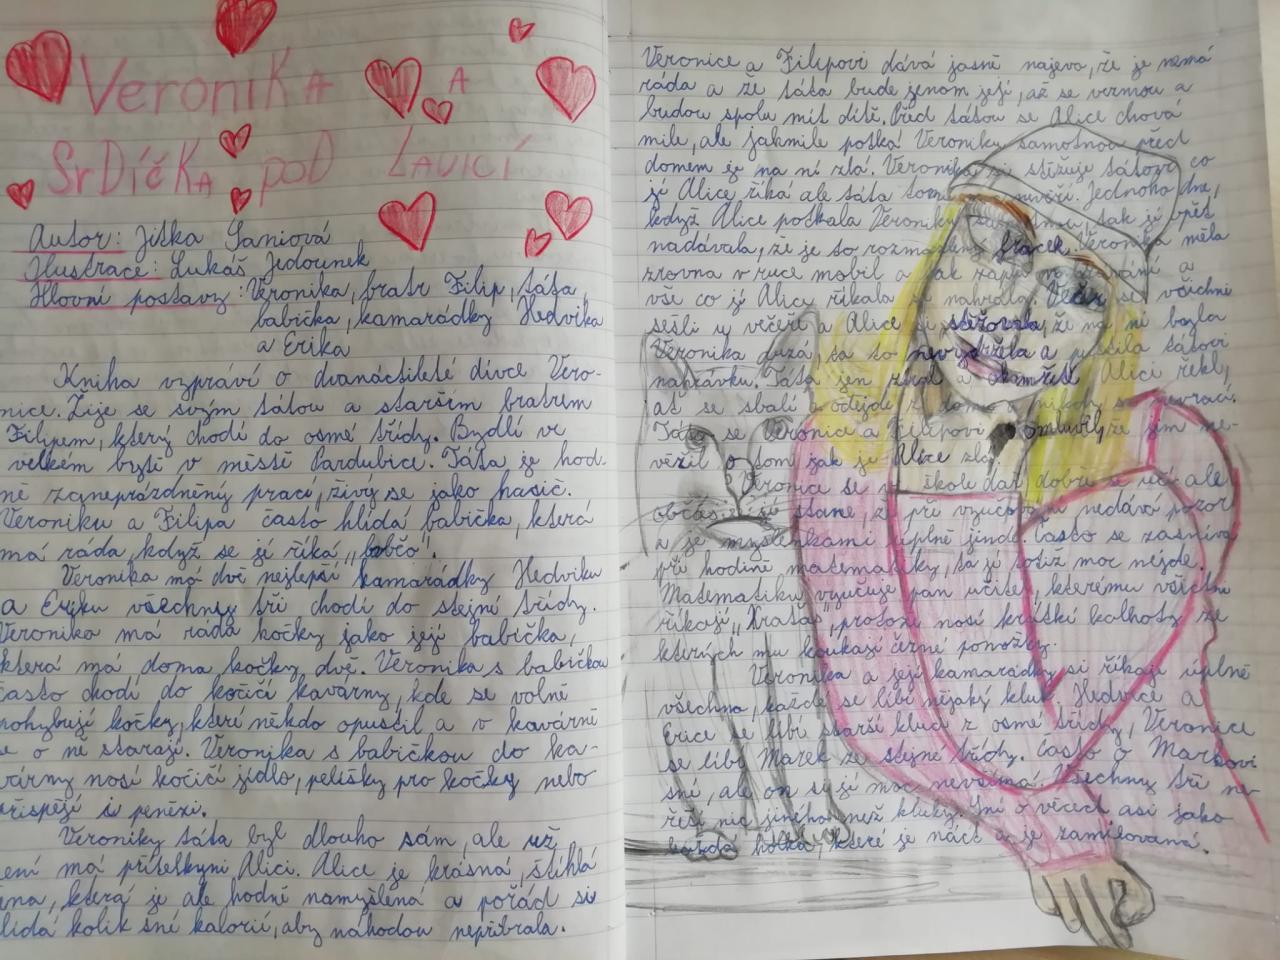 Veronika a
Srdíčka pod Lavicí
Autor: Jitka Saniová
Ilustrace: Lukáš Jedounek
Hlavní postavy: Veronika, bratr Filip, táta,
babička, kamarádky Hedvika
a Erika
Kniha vzpráví o dvanáctileté dívce Vero-
nice. Žije se svým tátou a starším bratrem
Filipem, který chodí do osmé třídy. Bydlí ve
velkém bytě v městě Pardubice. Táta je hod-
ně zaneprázdněný prací, živý se jako hasič.
Veroniku a Filipa často hlídá babička, která
má ráda, když se jí říká „babčo".
Veronika má dvě nejlepší kamarádky Hedviku
a Eriku všechny tři chodí do stejné třídy.
Veronika má ráda kočky jako její babička,
která má doma kočky dvě. Veronika s babičkou
často chodí do kočičí kavárny, kde se volně
pohybují kočky, které někdo opustil a v kavárně
se o ně starají. Veronika s babičkou do ka-
várny nosí kočičí jídlo, pelíšky pro kočky nebo
přispějí i penězi.
Veroniky táta byl dlouho sám, ale už
není má přítelkyni Alici. Alice je krásná, štíhlá
žena, která je ale hodně namyšlená a pořád si
hlídá kolik sní kalorií, aby náhodou nepřibrala.
Veronice a Filipovi dává jasně najevo, že je nemá
ráda a že táta bude jenom její, až se vezmou a
budou spolu mít dítě. Před tátou se Alice chová
mile, ale jakmile potká Veroniku samotnou před
domem je na ní zlá. Veronika si stěžuje tátovi co
jí Alice říká ale táta tomu nevěří. Jednoho dne,
když Alice potkala Veroniku samotnou, tak jí opět
nadávala, že je to rozmazlený fracek. Veronika měla
zrovna v ruce mobil a tak zapla nahrávání a
vše co jí Alice říkala se nahrálo. Večer se všichni
sešli u večeře a Alice si stěžovala, že na ní byla
Veronika drzá, ta to nevydržela a pustila tátovi
nahrávku. Táta jen zíral a okamžitě Alici řekl,
ať se sbalí a odejde z domu a nikdy se nevrací.
Táta se Veronice a Filipovi omluvil, že jim ne-
věřil o tom jak je Alice zlá.
Veronice se ve škole daří dobře se učí ale
občas se jí stane, že při vyučování nedává pozor
a je myšlenkami úplně jinde. Často se zasnívá
při hodině matematiky, ta jí totiž moc nejde.
Matematiku vyučuje pan učitel, kterému všichni
říkají „Kraťas", protože nosí krátký kalhoty ze
kterých mu koukají černé ponožky.
Veronika a její kamarádky si říkají úplně
všechno, každé se líbí nějaký kluk. Hedvice a
Erice se líbí starší kluci z osmé třídy, Veronice
se líbí Marek ze stejné třídy. Často o Markovi
sní, ale on si jí moc nevšímá. Všechny tři ne-
řeší nic jiného než kluky. Sní o věcech asi jako
každá holka, které je náct a je zamilovaná.